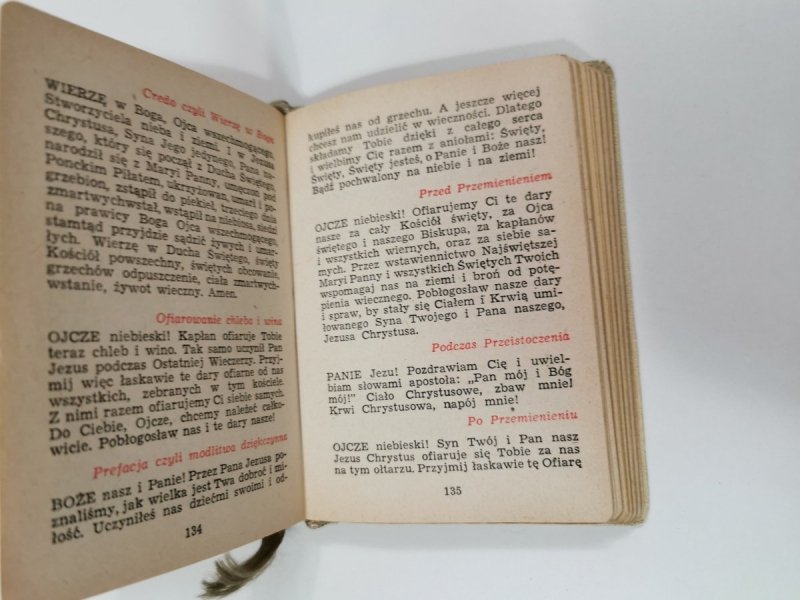 Credo czyli Wierzę w Boga
WIERZĘ w Boga, Ojca wszechmogącego,
Stworzyciela nieba i ziemi i w Jezusa
Chrystusa, Syna Jego jedynego, Pana na-
szego, który się począł z Ducha Świętego,
narodził się z Maryi Panny, umęczon pod
Ponckim Piłatem, ukrzyżowan, umarł i po-
grzebion, zstąpił do piekieł, trzeciego dnia
zmartwychwstał, wstąpił na niebiosa, siedzi
na prawicy Boga Ojca wszechmogącego,
stamtąd przyjdzie sądzić żywych i umar-
łych. Wierzę w Ducha Świętego, święty
Kościół powszechny, świętych obcowanie,
grzechów odpuszczenie, ciała zmartwych-
wstanie, żywot wieczny. Amen.
Ofiarowanie chleba i wina
OJCZE niebieski! Kapłan ofiaruje Tobie
teraz chleb i wino. Tak samo uczynił Pan
Jezus podczas Ostatniej Wieczerzy. Przyj-
mij więc łaskawie te dary ofiarne od nas
wszystkich, zebranych w tym kościele.
Z nimi razem ofiarujemy Ci siebie samych.
Do Ciebie, Ojcze, chcemy należeć całko-
wicie. Pobłogosław nas i te dary nasze!
Prefacja czyli modlitwa dziękczynna
BOŻE nasz i Panie! Przez Pana Jezusa po-
znaliśmy, jak wielka jest Twa dobroć i mi-
łość. Uczyniłeś nas dziećmi swoimi i od-
134
kupiłeś nas od grzechu. A jeszcze więcej
chcesz nam udzielić w wieczności. Dlatego
składamy Tobie dzięki z całego serca
i wielbimy Cię razem z aniołami: Święty,
Święty, Święty jesteś, o Panie i Boże nasz!
Bądź pochwalony na niebie i na ziemi!
Przed Przemienieniem
OJCZE niebieski! Ofiarujemy Ci te dary
nasze za cały Kościół święty, za Ojca
świętego i naszego Biskupa, za kapłanów
i wszystkich wiernych, oraz za siebie sa-
mych. Przez wstawiennictwo Najświętszej
Maryi Panny i wszystkich Świętych Twoich
wspomagaj nas na ziemi i broń od potę-
pienia wiecznego. Pobłogosław nasze dary
i spraw, by stały się Ciałem i Krwią umi-
łowanego Syna Twojego i Pana naszego,
Jezusa Chrystusa.
Podczas Przeistoczenia
PANIE Jezu! Pozdrawiam Cię i uwiel-
biam słowami apostoła: „Pan mój i Bóg
mój!” Ciało Chrystusowe, zbaw mnie!
Krwi Chrystusowa, napój mnie!
Po Przemienieniu
OJCZE niebieski! Syn Twój i Pan nasz
Jezus Chrystus ofiaruje się Tobie za nas
na tym ołtarzu. Przyjmij łaskawie tę Ofiarę
135